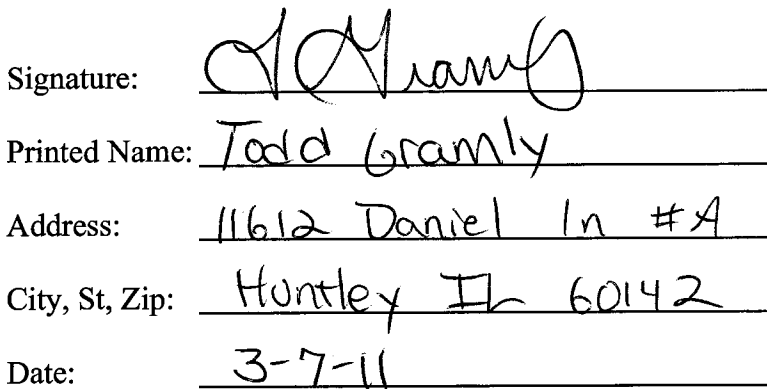 Signature: T Gramly
Printed Name: Todd Gramly
Address: 11612 Daniel ln #A
City, St, Zip: Huntley IL 60142
Date: 3-7-11